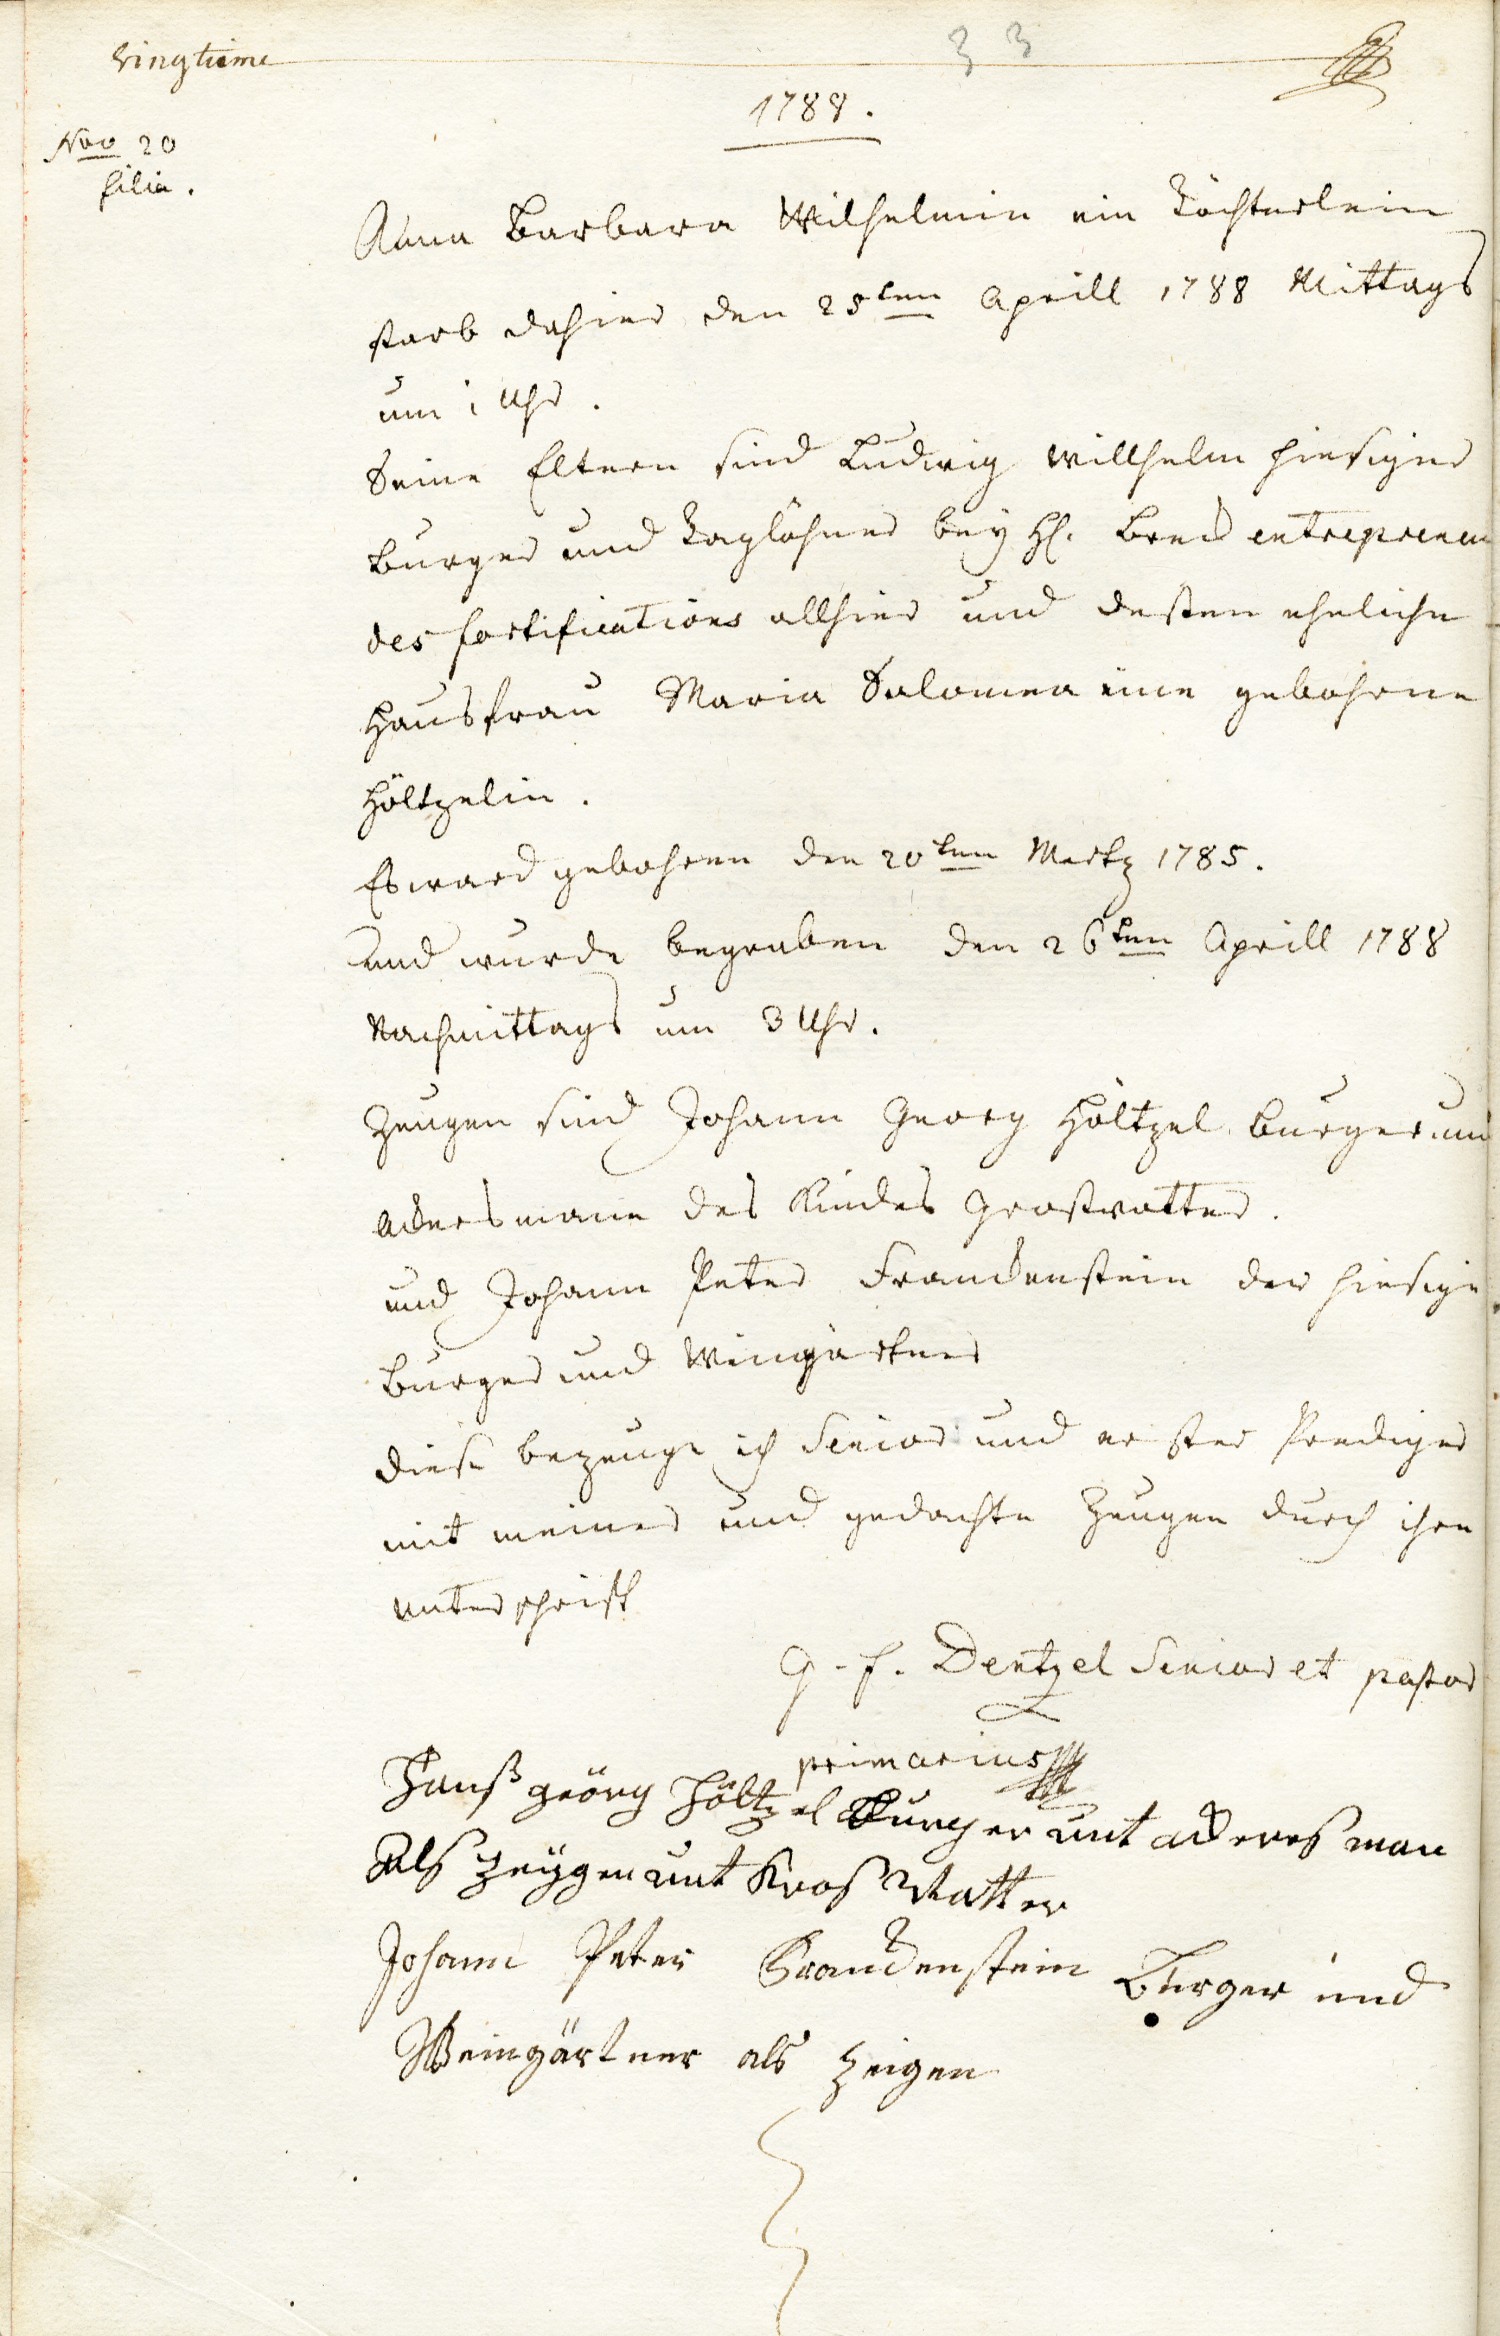 vingtieme
33
1788.
Nro 20
filia.
Anna Barbara Wilhelmin ein Töchterlein
starb dahier den 25ten Aprill 1788 Mittags
um 1 Uhr.
Seine Eltern sind Ludwig Willhelm hiesiger
Burger und Taglöhner bey H. entrepreneur
des fortifications allhier und dessen eheliche
Hausfrau Maria Salomea eine gebohrne
Höltzelin.
Es ward gebohren den 20ten Mertz 1785.
und wurde begraben den 26ten Aprill 1788
Nachmittags um 3 Uhr.
Zeugen sind Johann Georg Höltzel Burger und
Ackersmann des Kindes Grosvatter.
und Johann Peter Franckenstein der hiesige
Burger und Weingärtner
diese bezeuge ich Senior und erster Prediger
mit meiner und gedachte Zeugen durch ihre
Unterschrift
G. F. Dentzel Senior et pastor
primarius
Hanß georg Höltzel Burger unt ackeres man
Als Zeygen unt Kroß Vatter
Johann Peter Franckenstein Burger und
Weingärtner als Zeigen